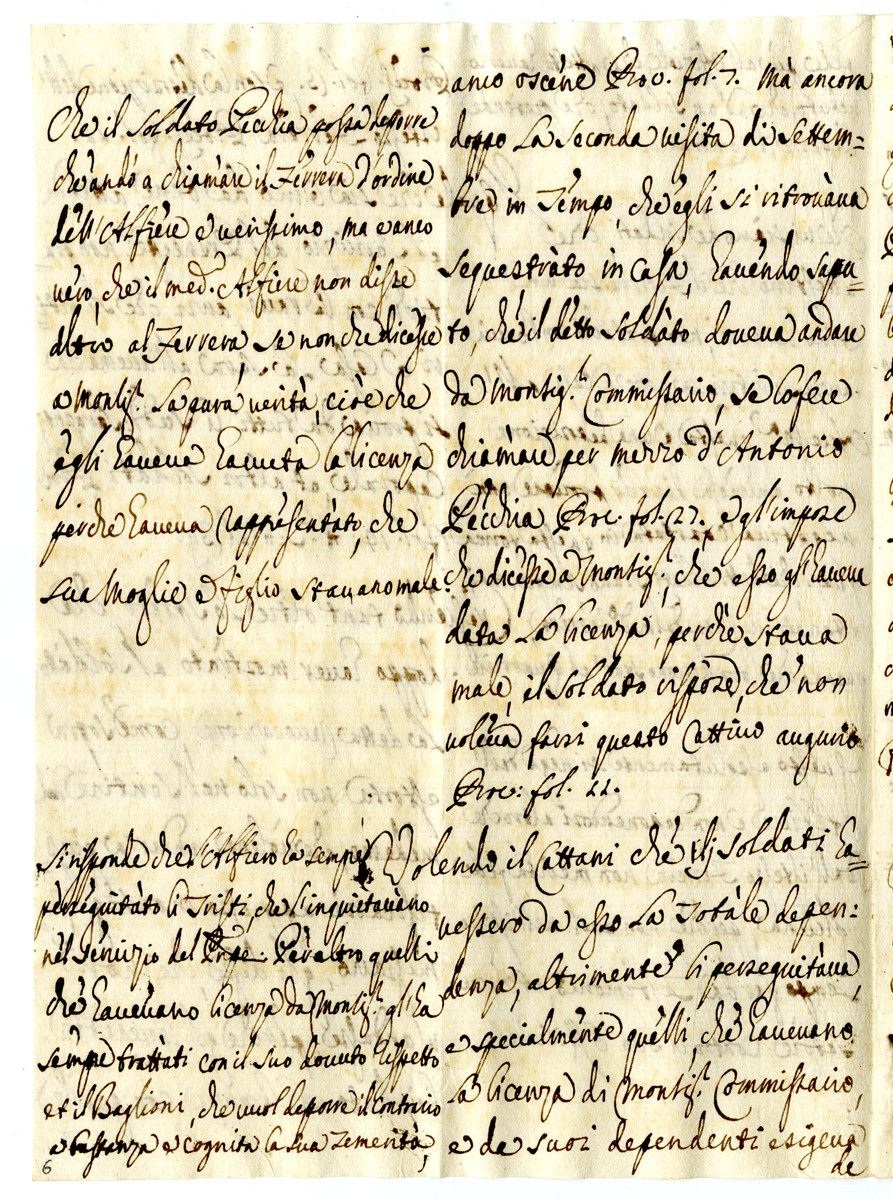 Che il soldato Pecchia possa deporre
che andò a chiamare il Ferrera d'ordine
dell'Alfiere è verissimo, ma è anco
vero, che il med.º Alfiere non disse
altro al Ferrera, se non che dicesse
a Monsig.r la pura verità, cioè che
egli haveva havuta la licenza
perche haveva rappresentato, che
sua Moglie e figlio stavano male.
Si risponde che l'Alfiero ha sempre
perseguitato li Tristi, che l'inquietavano
nel servizio del Prñpe: Per altro quelli
che havevano licenza da Monsig.r gl'ha
sempre trattati con il suo dovuto rispetto
et il Baglioni, che vuol deporre il contrario
a bastanza è cognita la sua temerità,
6
anco oscene Proc. fol. 7. Mà ancora
doppo la seconda visita di Settem=
bre in tempo, che egli si ritrovava
sequestrato in casa, havendo sapu=
to, che il detto soldato doveva andare
da Monsig.r Commissario, se lo fece
chiamare per mezzo d'Antonio
Pecchia Proc. fol. 27., e gl'impose
che dicesse a Monsig.r, che esso gl'haveva
data la licenza, perche stava
male, il soldato rispose, che non
voleva farsi questo cattivo augurio
Proc: fol. 22.
Volendo il Cattani che li soldati ha=
vessero da esso la totale depen:
denza, altrimente li perseguitava,
e specialmente quelli, che havevano
la licenza di Monsig.r Commissario,
e da suoi dependenti esigeva
de